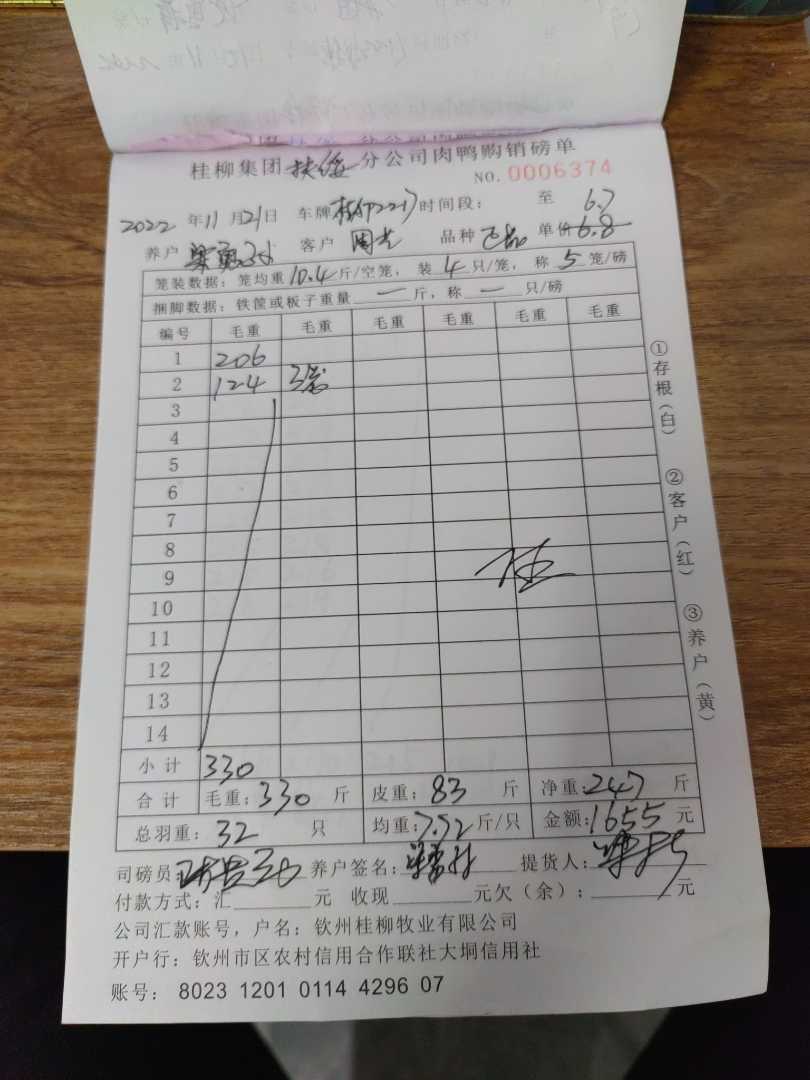 桂柳集团扶绥分公司肉鸭购销磅单
NO.0006374
2022年11月21日 车牌 时间段： 至 6.7
养户 客户 周光 品种 单价 6.8
笼装数据：笼均重10.4斤/空笼，装4只/笼，称5笼/磅
捆脚数据：铁筐或板子重量一斤，称一只/磅
编号 毛重 毛重 毛重 毛重 毛重 毛重
1 206
2 124 3笼
3
4
5
6
7
8
9
10
11
12
13
14
小计 330
合计 毛重：330斤 皮重：83斤 净重：247斤
总羽重：32只 均重：7.72斤/只 金额：1655元
司磅员： 养户签名： 提货人：
付款方式：汇 元 收现 元欠（余）： 元
公司汇款账号，户名：钦州桂柳牧业有限公司
开户行：钦州市区农村信用合作联社大垌信用社
账号： 8023 1201 0114 4296 07
①存根（白） ②客户（红） ③养户（黄）